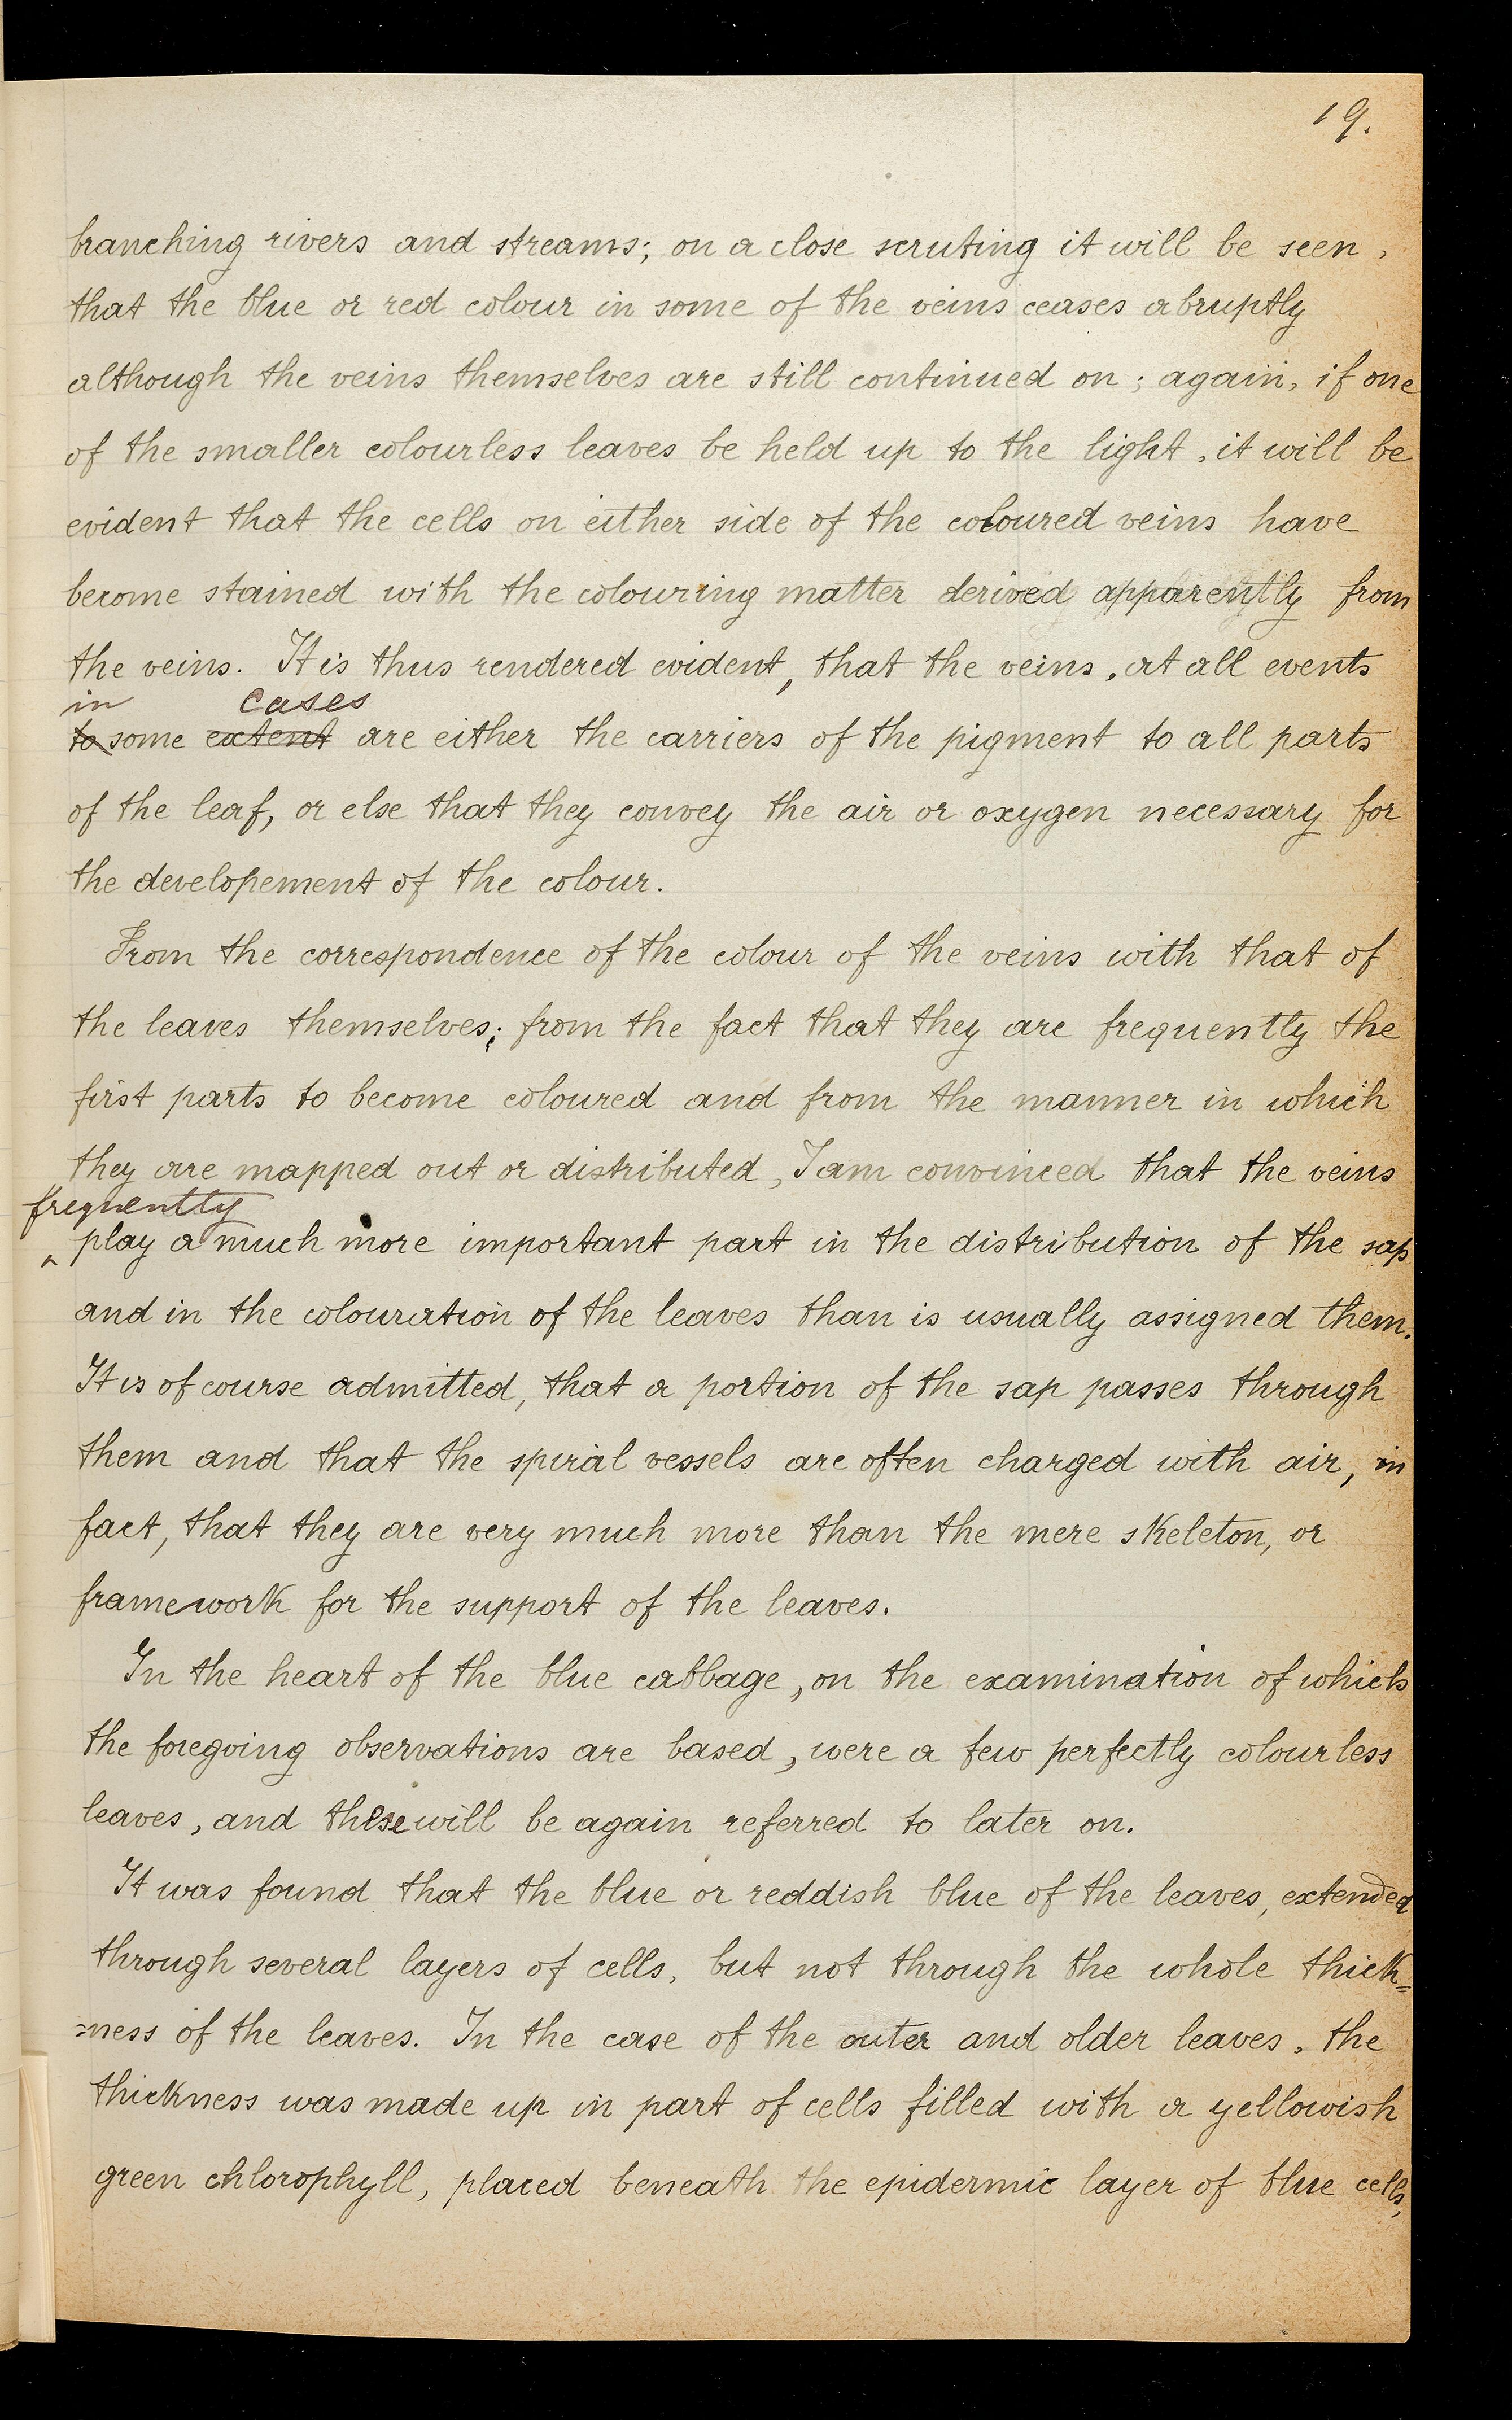 19.
branching rivers and streams; on a close scruting it will be seen,
that the blue or red colour in some of the veins ceases abruptly
although the veins themselves are still continued on; again, if one
of the smaller colourless leaves be held up to the light, it will be
evident that the cells on either side of the coloured veins have
become stained with the colouring matter derived apparently from
the veins. It is thus rendered evident, that the veins, at all events
in cases
to some extent are either the carriers of the pigment to all parts
of the leaf, or else that they convey the air or oxygen necessary for
the developement of the colour.
From the correspondence of the colour of the veins with that of
the leaves themselves; from the fact that they are frequently the
first parts to become coloured and from the manner in which
they are mapped out or distributed, I am convinced that the veins
frequently
^ play a much more important part in the distribution of the sap
and in the colouration of the leaves than is usually assigned them.
It is of course admitted, that a portion of the sap passes through
them and that the spiral vessels are often charged with air, in
fact, that they are very much more than the mere skeleton, or
framework for the support of the leaves.
In the heart of the blue cabbage, on the examination of which
the foregoing observations are based, were a few perfectly colourless
leaves, and these will be again referred to later on.
It was found that the blue or reddish blue of the leaves, extended
through several layers of cells, but not through the whole thick=
=ness of the leaves. In the case of the outer and older leaves, the
thickness was made up in part of cells filled with a yellowish
green chlorophyll, placed beneath the epidermic layer of blue cells,